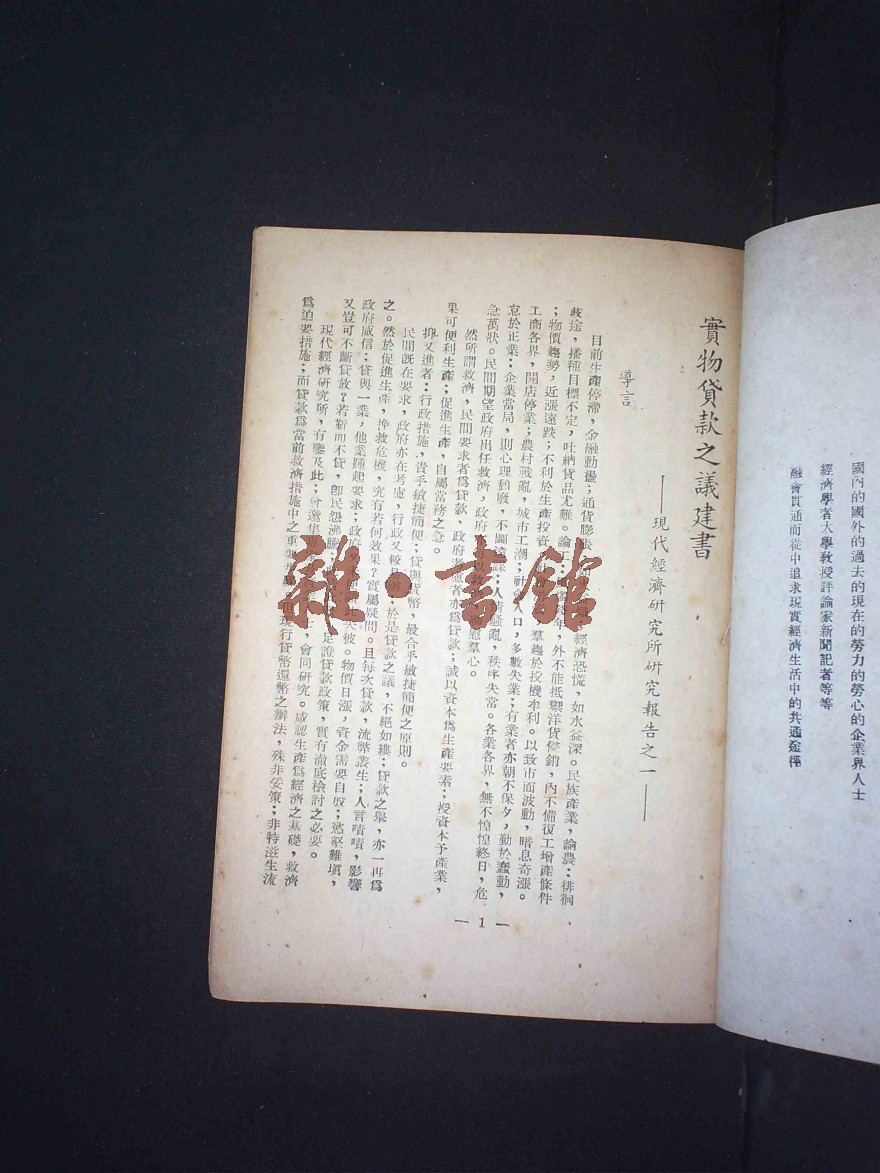 國內的國外的過去的現在的勞力的勞心的企業界人士
經濟學者大學教授評論家新聞記者等等
融會貫通而從中追求現實經濟生活中的共通途徑
實物貸款之議建書
——現代經濟研究所研究報告之一——
導言
目前生產停滯,金融動盪;通貨膨脹 經濟恐慌,如水益深。民族產業,論農:徘徊
歧途,播種目標不定,吐納貨品尤難。論工: 年,外不能抵禦洋貨傾銷,內不備復工增產條件
;物價趨勢,近漲遠跌;不利於生產投資, 羣趨於投機牟利。以致市面波動,暗息奇漲。
工商各界,開店停業;農村戰亂,城市工潮;社會人口,多數失業;有業者亦朝不保夕,勤於蠢動,
怠於正業;企業當局,則心理頹廢,不圖遠謀;人情騷亂,秩序失常。各業各界,無不惶惶終日,危
急萬狀。民間期望政府出任救濟,政府 羣心。
然所謂救濟,民間要求者為貸款,政府 者亦為貸款;誠以資本為生產要素;投資本予產業,
果可便利生產;促進生產,自屬當務之急。
抑又進者:行政措施,貴乎敏捷簡便;貸與貨幣,最合乎敏捷簡便之原則。
民間既在要求,政府亦在考慮,行政又較 於是貸款之議,不絕如縷;貸款之舉,亦一再為
之。然於促進生產,挽救危機,究有若何效果?實屬疑問。且每次貸款,流弊叢生;人言嘖嘖,影響
政府威信;貸與一業,他業踵起要求;政府 失彼。物價日漲,資金需要自殷;慾壑難填,
又豈可不斷貸放?若靳而不貸,卽民怨沸騰 是證貸款政策,實有澈底檢討之必要。
現代經濟研究所,有鑒及此;曾邀集 ,會同研究。咸認生產為經濟之基礎,救濟
為迫要措施;而貸款為當前救濟措施中之重要 現行貸幣還幣之辦法,殊非妥策;非特滋生流
— 1 —
雜·書館